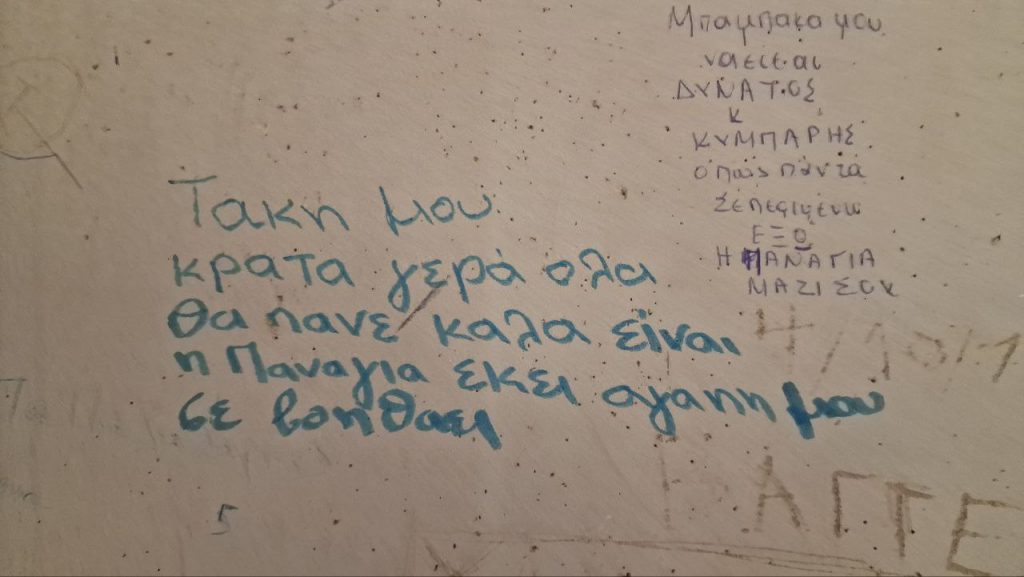 Μπαμπακα μου
να εισαι
ΔΥΝΑΤΟΣ
κ
ΚΥΜΠΑΡΗΣ
οπως παντα
Σε περιμενω
ΕΞΟ
Η ΠΑΝΑΓΙΑ
ΜΑΖΙ ΣΟΥ
Τακη μου
κρατα γερά ολα
θα πανε καλα είναι
η Παναγια εκει αγαπη μου
σε βοηθαει
5
ΒΑΓΓΕ